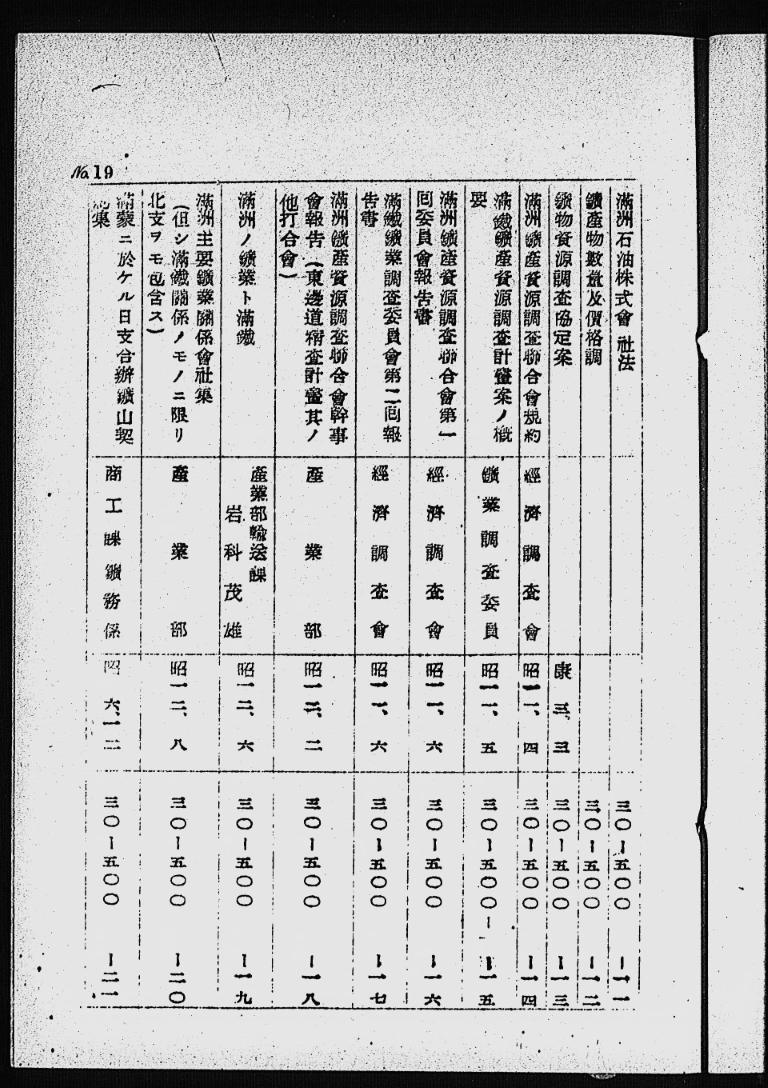 No. 19
滿洲石油株式會社法
三〇—五〇〇—一一
鑛產物數量及價格調
三〇—五〇〇—一二
鑛物資源調查協定案
康 三、三
三〇—五〇〇—一三
滿洲鑛產資源調查聯合會規約
經濟調查會
昭一一、四
三〇—五〇〇—一四
滿鐵鑛產資源調查計畫案ノ概
要
鑛業調查委員
昭一一、五
三〇—五〇〇—一五
滿洲鑛產資源調查聯合會第一
回委員會報告書
經濟調查會
昭一一、六
三〇—五〇〇—一六
滿鐵鑛業調查委員會第二回報
告書
經濟調查會
昭一一、六
三〇—五〇〇—一七
滿洲鑛產資源調查聯合會幹事
會報告（東邊道精查計畫其ノ
他打合會）
產業部
昭一二、二
三〇—五〇〇—一八
滿洲ノ鑛業ト滿鐵
產業部輸送課
岩科茂雄
昭一二、六
三〇—五〇〇—一九
滿洲主要鑛業關係會社集
（但シ滿鐵關係ノモノニ限リ
北支ヲモ包含ス）
產業部
昭一二、八
三〇—五〇〇—二〇
滿蒙ニ於ケル日支合辦鑛山契
集
商工課鑛務係
昭 六、一二
三〇—五〇〇—二一